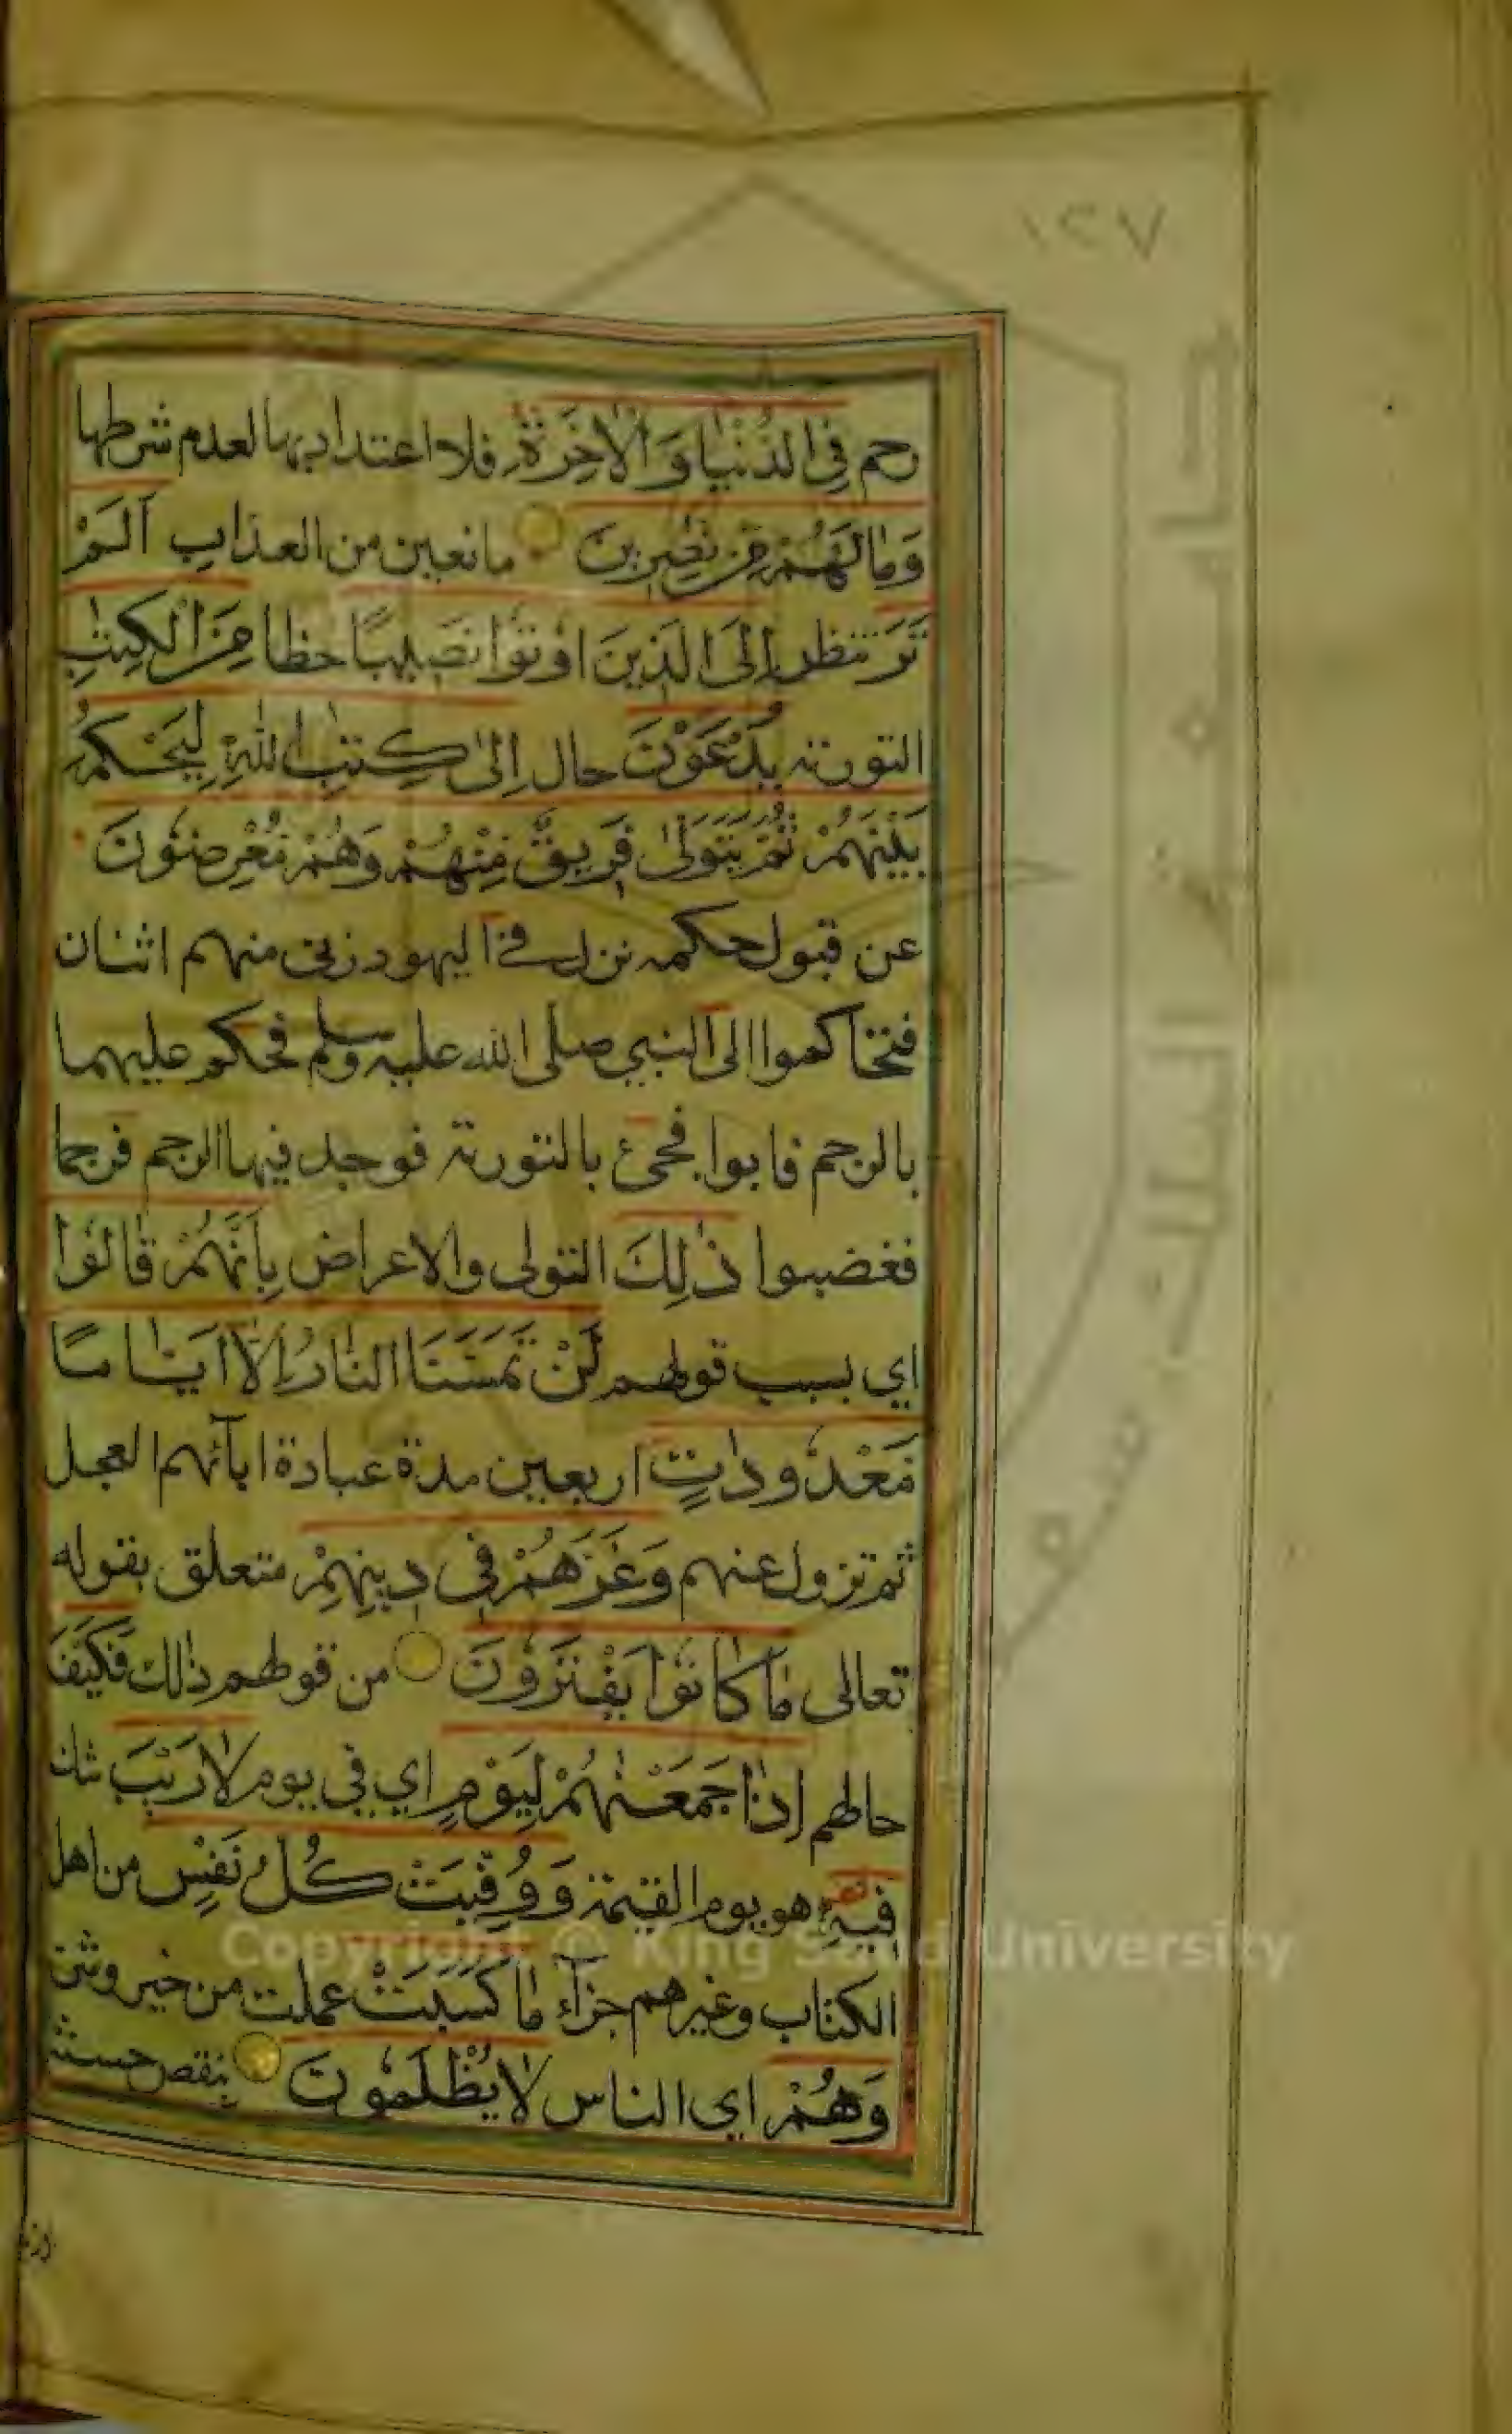 ١٢٧
رحم فِي الدُّنْيَا وَالْاٰخِرَةِ فلا اعتداد بها لعدم شرطها
وَمَا لَهُمْ مِنْ نٰصِرِينَ مانعين من العذاب اَلَمْ
تَرَ تنظر اِلَى الَّذِينَ اُوتُوا نَصِيبًا حظا مِنَ الْكِتٰبِ
التورية يُدْعَوْنَ حال اِلٰى كِتٰبِ اللّٰهِ لِيَحْكُمَ
بَيْنَهُمْ ثُمَّ يَتَوَلّٰى فَرِيقٌ مِنْهُمْ وَهُمْ مُعْرِضُونَ
عن قبول حكمه نزل في اليهود زنى منهم اثنان
فتحاكموا الى النبي صلى الله عليه وسلم فحكم عليهما
بالرجم فابوا فجئ بالتورية فوجد فيها الرجم فرجما
فغضبوا ذٰلِكَ التولى والاعراض بِاَنَّهُمْ قَالُوا
اي بسبب قولهم لَنْ تَمَسَّنَا النَّارُ اِلَّا اَيَّامًا
مَعْدُودَاتٍ اربعين مدة عبادة ابآئهم العجل
ثم تزول عنهم وَغَرَّهُمْ فِي دِينِهِمْ متعلق بقوله
تعالى مَا كَانُوا يَفْتَرُونَ من قولهم ذلك فَكَيْفَ
حالهم اِذَا جَمَعْنٰهُمْ لِيَوْمٍ اي في يوم لَا رَيْبَ شك
فِيهِ هو يوم القيمة وَوُفِّيَتْ كُلُّ نَفْسٍ من اهل
الكتاب وغيرهم جزآء مَا كَسَبَتْ عملت من خير وشر
وَهُمْ اي الناس لَا يُظْلَمُونَ بنقص حسنة
Copyright © King Saud University